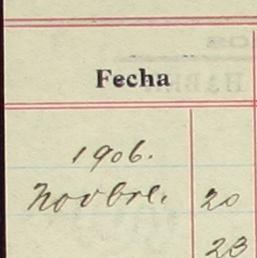 Fecha
1906.
Novbre. 20
23